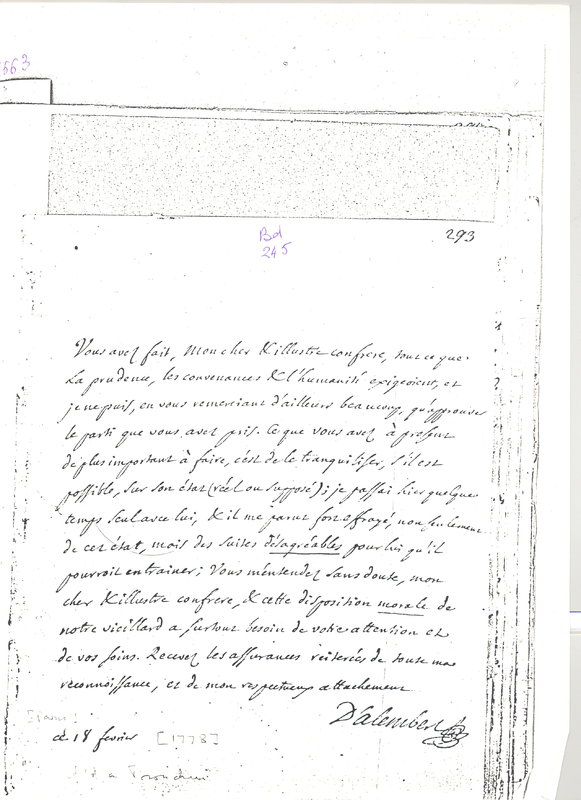 663
Bd
245
293
Vous avez fait, Mon cher & illustre confrere, tout ce que
La prudence, les convenances & l'humanité exigeoient, et
je ne puis, en vous remerciant d'ailleurs beaucoup, qu'approuver
le parti que vous avez pris. Ce que vous avez à présent
de plus important à faire, c'est de le tranquiliser, s'il est
possible, sur son état (réel ou supposé); je passai hier quelque
temps seul avec lui, & il me parut fort effrayé, non seulement
de cet état, mais des suites désagréables pour lui qu'il
pourroit entrainer; Vous m'entendez sans doute, mon
cher & illustre confrere, & cette disposition morale de
notre vieillard a surtout besoin de votre attention et
de vos soins. Recevez les assurances reiterées de toute ma
reconnoissance, et de mon respectueux attachement
D'alembert
ce 18 fevrier [1778]
a Tronchin